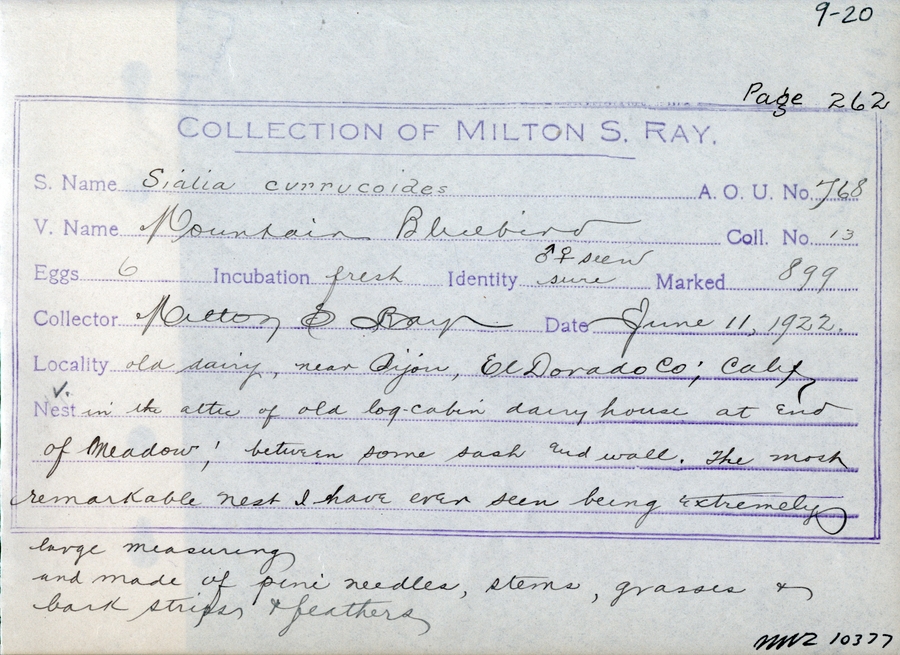 9-20
Page 262
COLLECTION OF MILTON S. RAY.
S. Name Sialia currucoides A. O. U. No. 768
V. Name Mountain Bluebird Coll. No. 13
♂♀ seen
Eggs 6 Incubation fresh Identity sure Marked 899
Collector Milton S Ray Date June 11, 1922.
Locality old dairy, near Bijou, El Dorado Co; Calif
✓.
Nest in the attic of old log-cabin dairy house at end
of Meadow, between some sash and wall. The most
remarkable nest I have ever seen being extremely
large measuring
and made of pine needles, stems, grasses &
bark strips & feathers
MVZ 10377